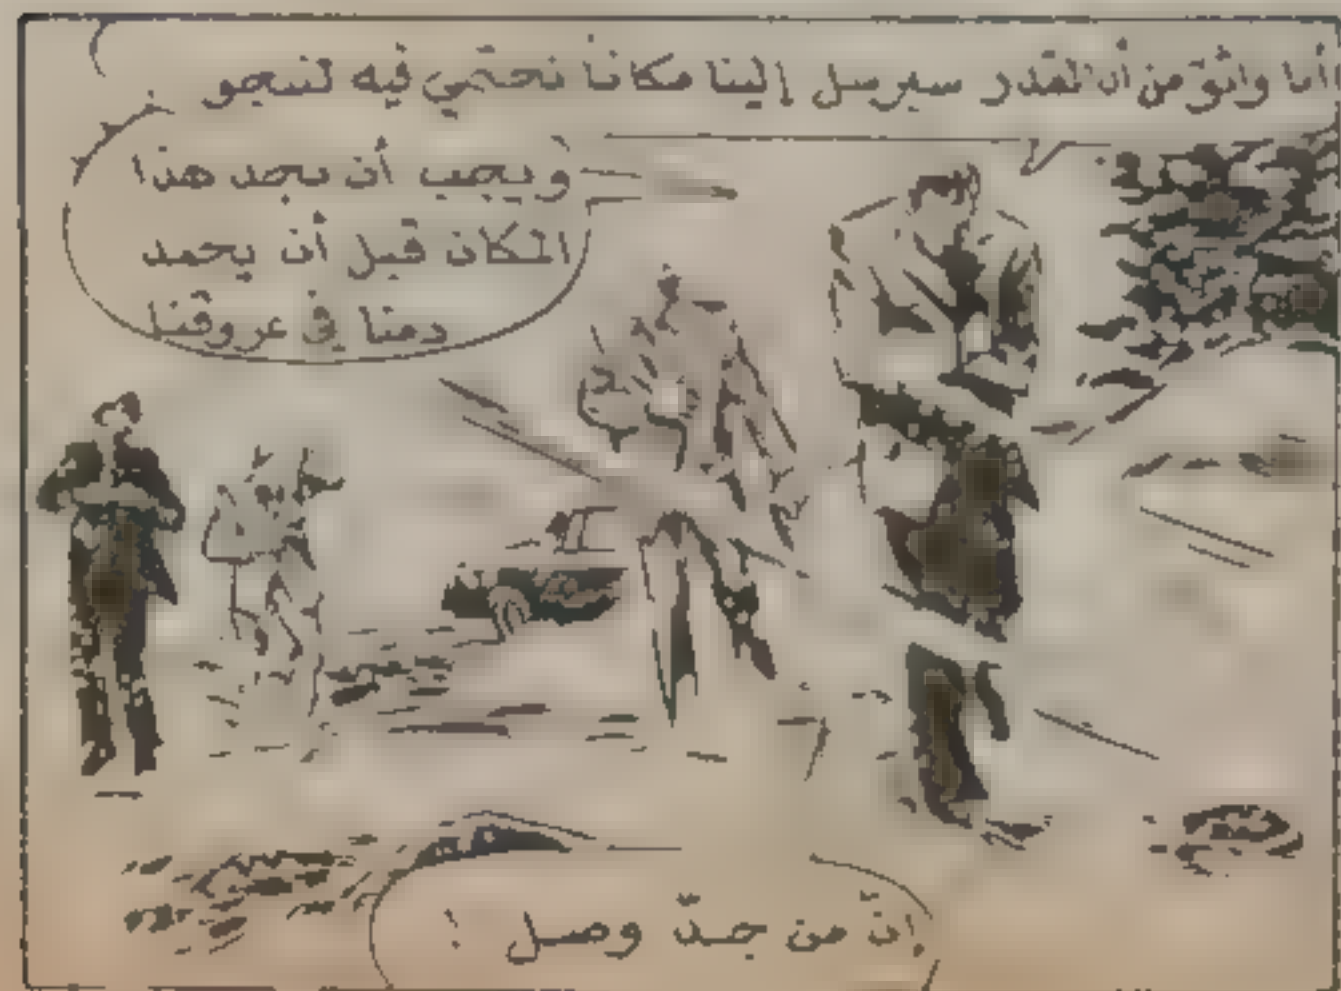 أنا واثق من أن القدر سيرسل إلينا مكاناً نحتمي فيه لننجو
ويجب أن نجد هذا
المكان قبل أن يجمد
دمنا في عروقنا
إنّ من جدّ وصل !